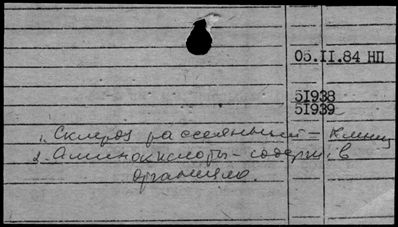 05.II.84 НП
51938
51939
1. Склероз рассеянный – клиник
2. Аминокислоты – содерж. в
организме.